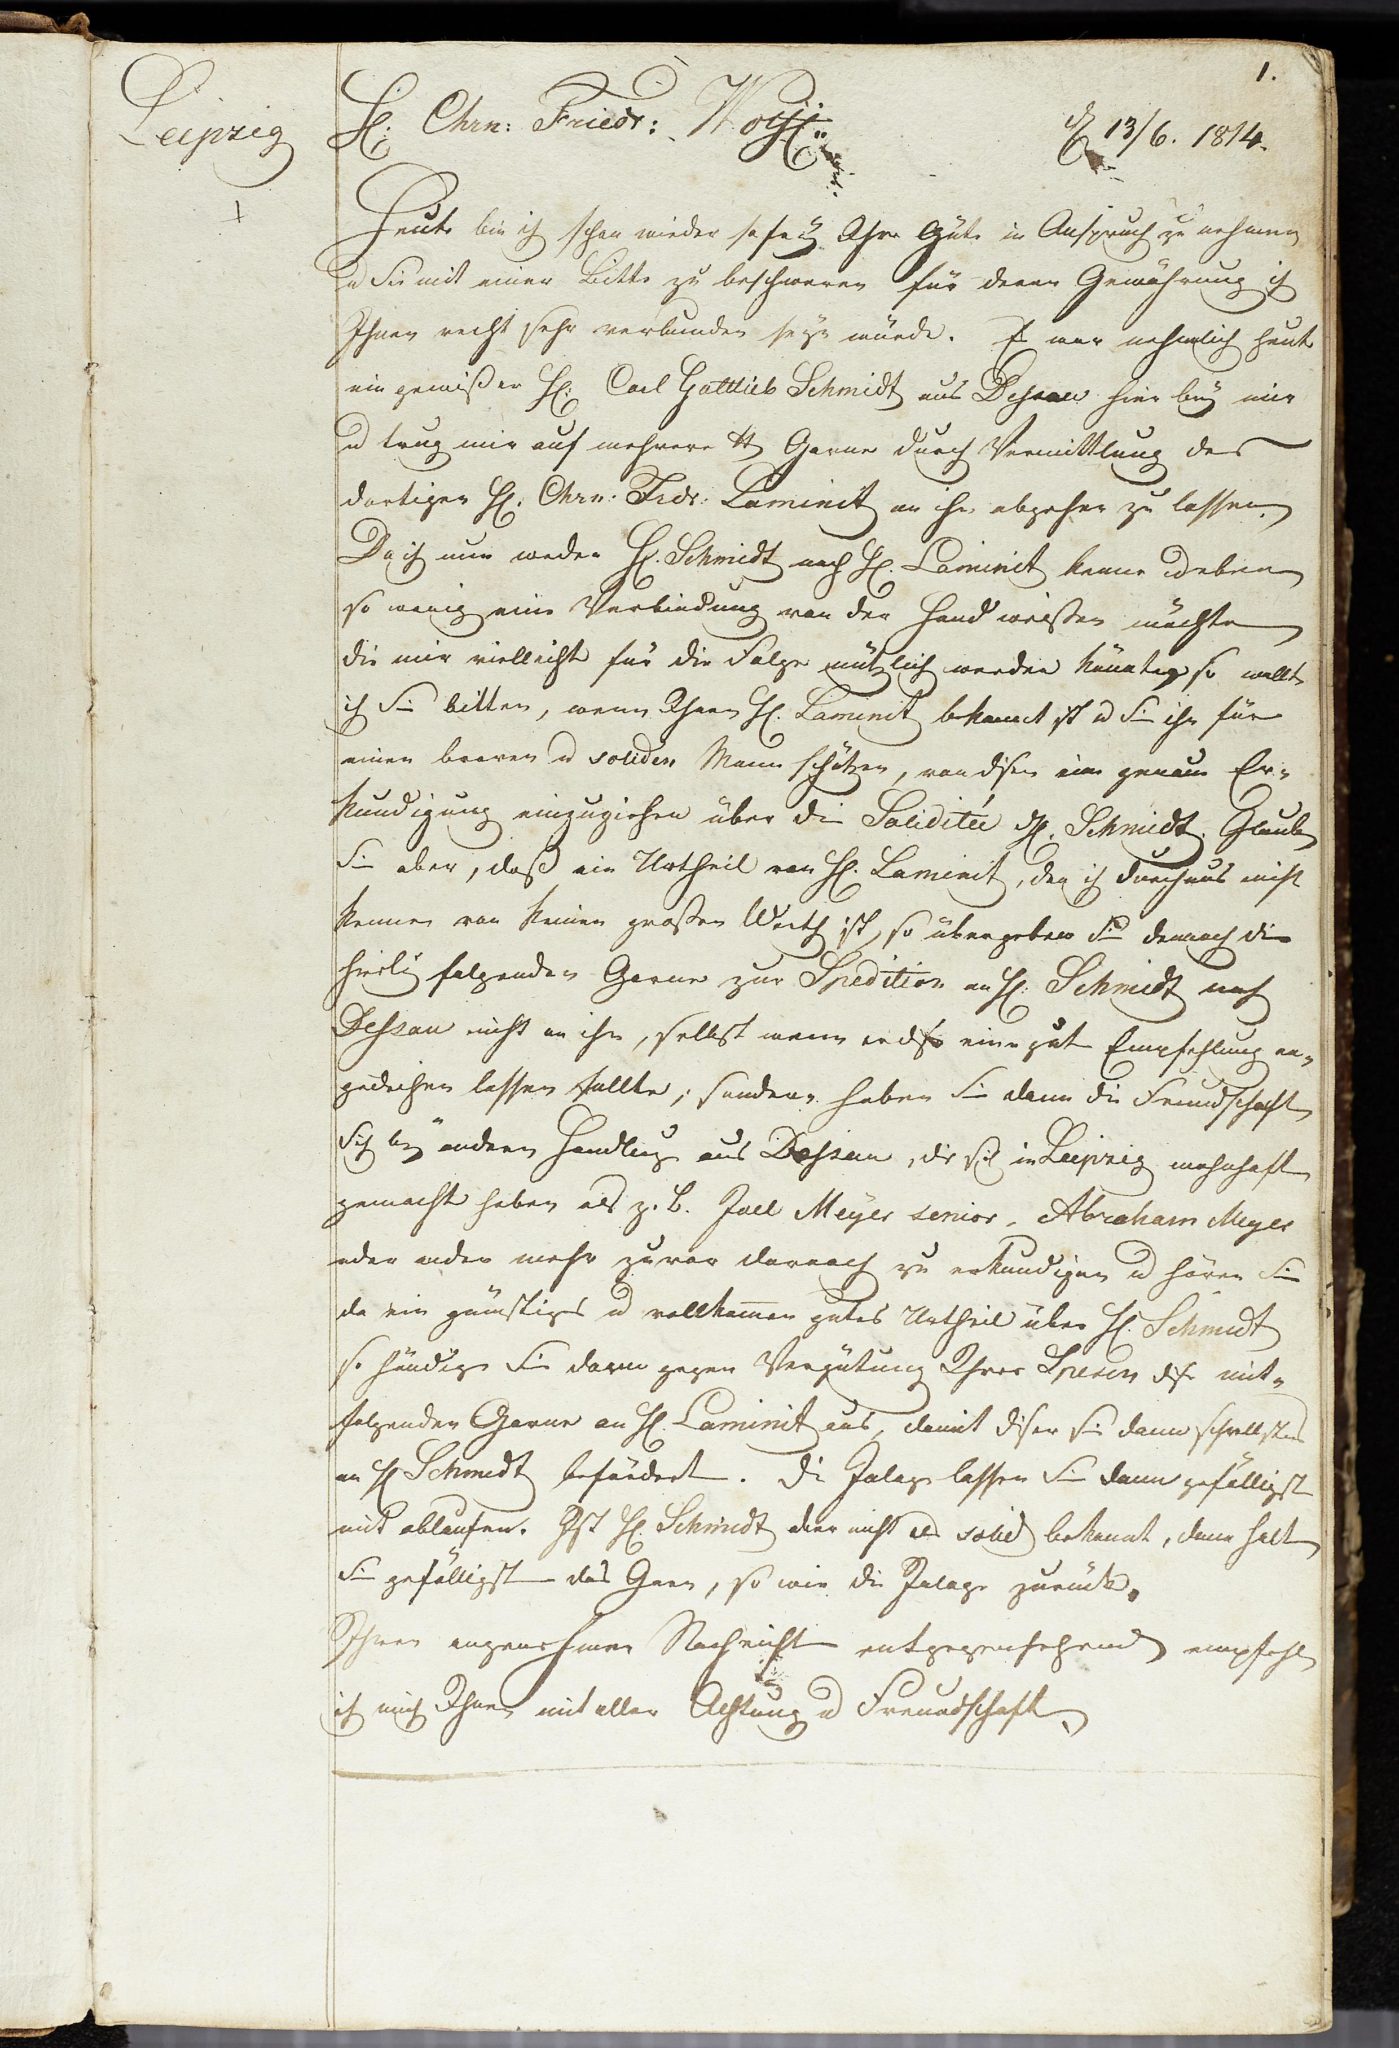 1.
Leipzig
H: Chrn: Friedr:
d 13/6. 1814.
Heute bin ich schon wieder so frey Ihre Güte in Anspruch zu nehmen
u Sie mit einer Bitte zu beschweren für deren Gewährung ich
Ihnen recht sehr verbunden seyn würde. Es war nehmlich heute
ein gewißer H: Carl Gottlieb Schmidt aus Dessau hier bey mir
u trug mir auf mehrere ℔ Garne durch Vermittlung des
dortigen H: Chrn: Frdr: Laminit an ihn abgehen zu lassen.
Da ich nun weder H. Schmidt noch H. Laminit kenne u eben
so wenig eine Verbindung von der Hand weißen möchte
die mir vielleicht für die Folge nützlich werden könnte, so wollte
ich Sie bitten, wenn Ihnen H. Laminit bekannt ist u Sie ihn für
einen braven u soliden Mann schätzen, von disen eine genaue Er-
kundigung einzuziehen über die Soliditée d H. Schmidt. Glauben
Sie aber, daß ein Urtheil von H. Laminit, den ich durchaus nicht
kenne von keinen großen Werth ist, so übergeben Sie dennoch die
hierbey folgenden Garne zur Spedition an H: Schmidt nach
Dessau nicht an ihn, selbst wenn er diß eine gute Empfehlung an-
gedeihen lassen sollte, sondern haben Sie dann die Freundschaft
Sich bey andern Handlung aus Dessau, die sich in Leipzig wohnhaft
gemacht haben als z. B. Joel Meyer senior, Abraham Meyer
oder andre mehr zuvor darnach zu erkundigen u hören Sie
da ein günstiges u vollkommen gutes Urtheil über H. Schmidt
so händigen Sie dann gegen Vergütung Ihrer Spesen dise mit-
folgenden Garne an H. Laminit aus, damit diser sie dann schnellstens
an H Schmidt befördert. Die Inlage lassen Sie dann gefälligst
mit ablaufen. Ist H. Schmidt aber nicht als solid bekannt, dann halten
Sie gefälligst das Garn, so wie die Inlage zurück.
Ihrer angenehmen Nachricht entgegensehend empfehle
ich mich Ihnen mit aller Achtung u Freundschaft.